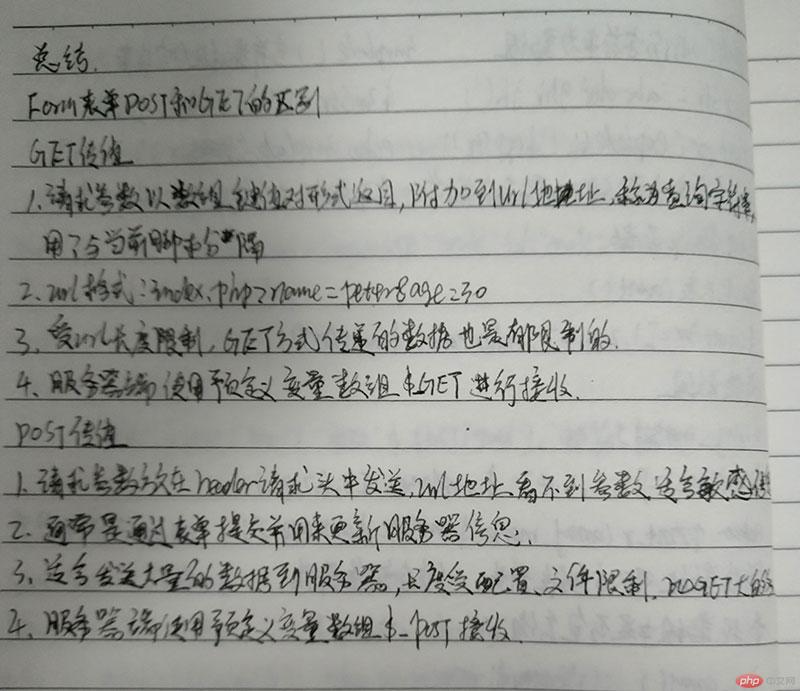 总结.
Form表单POST和GET的区别
GET传值
1.请求参数以数组键值对形式返回,附加到url地址,称为查询字符串,
用?与当前脚本分隔
2.url格式:index.php?name=petter&age=30
3.受url长度限制,GET方式传递的数据也是有限制的.
4.服务器端使用预定义变量数组$_GET进行接收.
POST传值
1.请求参数放在header请求头中发送,url地址看不到参数适合敏感
2.通常是通过表单提交并用来更新服务器信息.
3.适合发送大量的数据到服务器,只受配置文件限制,比GET大的
4.服务器端使用预定义变量数组$_POST接收.
php 中文网